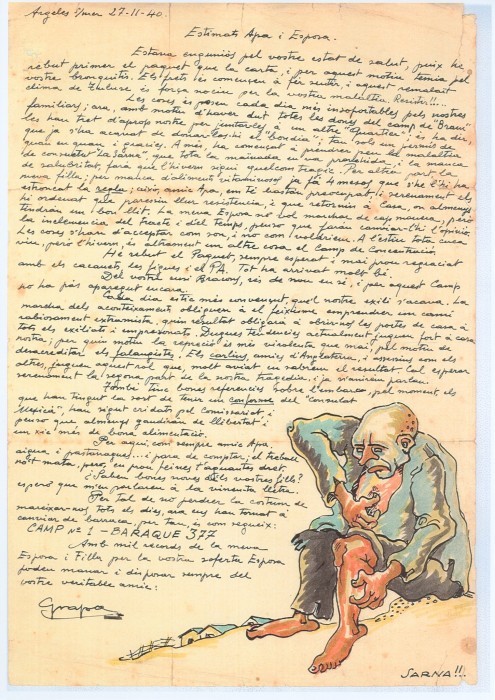 Argeles s/mer 27-11-40.
Estimats Apa i Esposa.
Estava enguniós pel vostre estat de salut, puix he
rebut primer el paquet que la carta, i per aquest motiu temia pel
vostre bronquitis. Els frets ès començen a fer sentir, i aquest remalait
clima de és força nociu per la vostra malaltia. Resistiu!!..
Les coses es posen cada dia més insoportables pels nostres
familiars; ara, amb motiu d'haver dut totes les dones del camp de "Bram"
les han tret d'aprops nostre per a un altre "Quartier", i a d'er,
que ja s'ha acavat de donar-les-hi el "bondia"; tan sols un permís de
quan en quan i gracies. A més, ha començat a pendrer peu la malaltia
de "La Sarna", que tota la mainada en va i la manca
de salubritat farà que l'hivern sigui quelcom tragic. Per altre part, la
meva filla; per manca d'aliments ja fá 4 mesos, que s'he l'hi ha
estroncat la regla; aixó, amic Apa, em té bastan preocupat i, serenament els
hi ordenat que llur resistencia, i que retornin a Casa, on almenys
tendrán un bon llit. La meva Esposa no vol marchar de cap manera, però
la inclemencia del tracte i del temps, penso que farán canviar-l'hi l'opinió.
Les coses s'han d'acceptar com són, i no com l'voldriem. A l'estiu tota cuca
viu, però l'hivern, és altrament un altre cosa el Camp de Concentració.
Hé rebut el Paquet, sempre esperat i mai prou regraciat
amb els cacauets, les figues i el PA. Tot ha arrivat molt bé.
Del vostre cusi Brasons, rés de nou en sé, i per aquest Camp
no ha pás aparegut encara.
Cada dia estic més convençut, que'l nostre exili s'acava. La
marcha dels aconteixaments obliguen à el feixisme empendrer un camí
rabiosament extramista, quin resultat obligará a obrirnos les portes de casa à
tots els exiliats i empresonats. Dugues tendencies actualment juguen fort à casa
nostra; per quin motiu la represió és més virulenta que mai pel motiu de
desacreditar els falangistes. Els carlins, amics d'Anglaterra, i assesins com els
altres, juguen aquet rol que molt aviat en sabrém el resultat. Cal esperar
serenament la segona part de la nostra tragedia, i ja n'anirem parlan.
També tinc bones referencies sobre l'embarc; pel moment, els
que han tingut la sort de tenir un conforme del "Consulat
Mexicà", han sigut cridats pel Comissariat i
penso que almenys gaudirán de llibertat i
un xic més de bona alimentació.
Per aquí, com sempre amic Apa,
aigua i pastanagues...i para de comptar; el treball
no't mata, però, en prou feines t'aguantes dret.
¿Sabeu bones noves dels vostres fills?
esperò que m'en parlareu à la vinenta lletra.
Per tal de no perdrer la costum de
mareixar-nos tots els dies, ara ens han tornat à
canviar de barraca, per tan, és com segueix:
CAMP Nº 1 - BARAQUE 377
Amb mil records de la meva
Esposa i Filla per la vostra soferta Esposa
podeu manar i disposar sempre del
vostre veritable amic:
Grapa
SARNA!!!